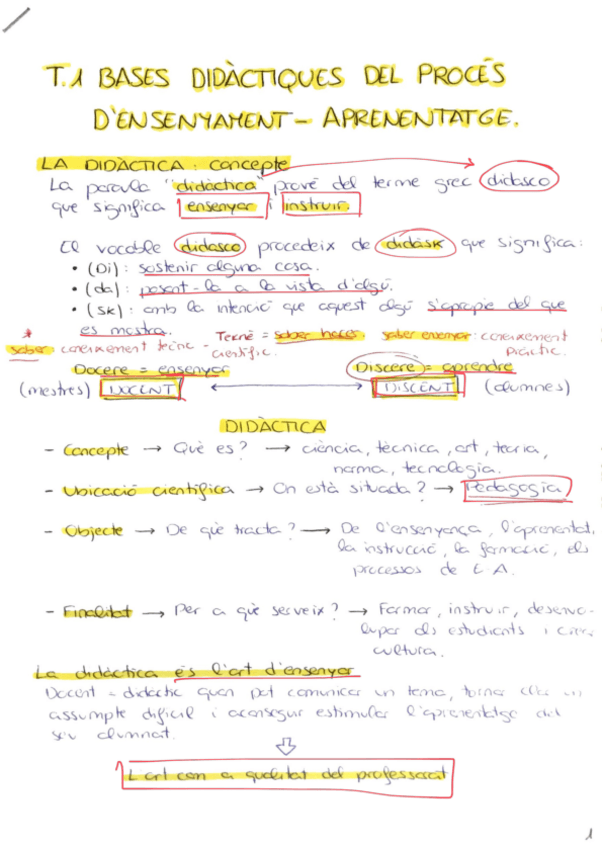 T.1 BASES DIDÀCTIQUES DEL PROCÉS
D'ENSENYAMENT - APRENENTATGE.
LA DIDÀCTICA: concepte
La paraula "didàctica" prové del terme grec didasco
que significa ensenyar i instruir.
El vocable didasco procedeix de didask que significa:
• (Di): sostenir alguna cosa.
• (da): posant-la a la vista d'algú.
• (sk): amb la intenció que aquest algú s'apropie del que
es mostra.
* Tecné = saber hacer. saber ensenyar: coneixement
saber: coneixement tècnic - científic. pràctic.
Docere = ensenyar Discere = aprendre
(mestres) DOCENT ↔ DISCENT (alumnes)
DIDÀCTICA
- Concepte → Què es? → ciència, tècnica, art, teoria,
norma, tecnologia.
- Ubicació científica → On està situada? → Pedagogia
- Objecte → De què tracta? → De l'ensenyança, l'aprenentat,
la instrucció, la formació, els
processos de E.A.
- Finalitat → Per a què serveix? → Formar, instruir, desenvo-
lupar els estudiants i crear
cultura.
La didàctica és l'art d'ensenyar
Docent = didàctic quan pot comunicar un tema, tornar clar un
assumpte difícil i aconseguir estimular l'aprenentatge del
seu alumnat.
⇩
L'art com a qualitat del professorat
1